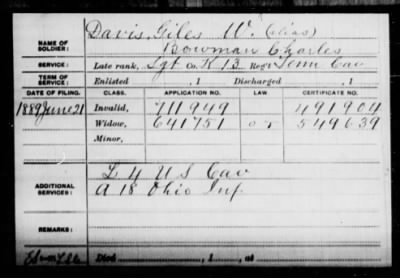 Davis, Giles W. (alias)
NAME OF SOLDIER: Bowman Charles
SERVICE: Late rank, Sgt Co. K 13 Reg't Tenn Cav
TERM OF SERVICE: Enlisted , 1 Discharged , 1
DATE OF FILING. CLASS. APPLICATION NO. LAW. CERTIFICATE NO.
1889 June 21 Invalid, 711949 491904
Widow, 641751 549639
Minor,
L 4 U S Cav
ADDITIONAL SERVICES: A 18 Ohio Inf
REMARKS:
Died , 1 , at